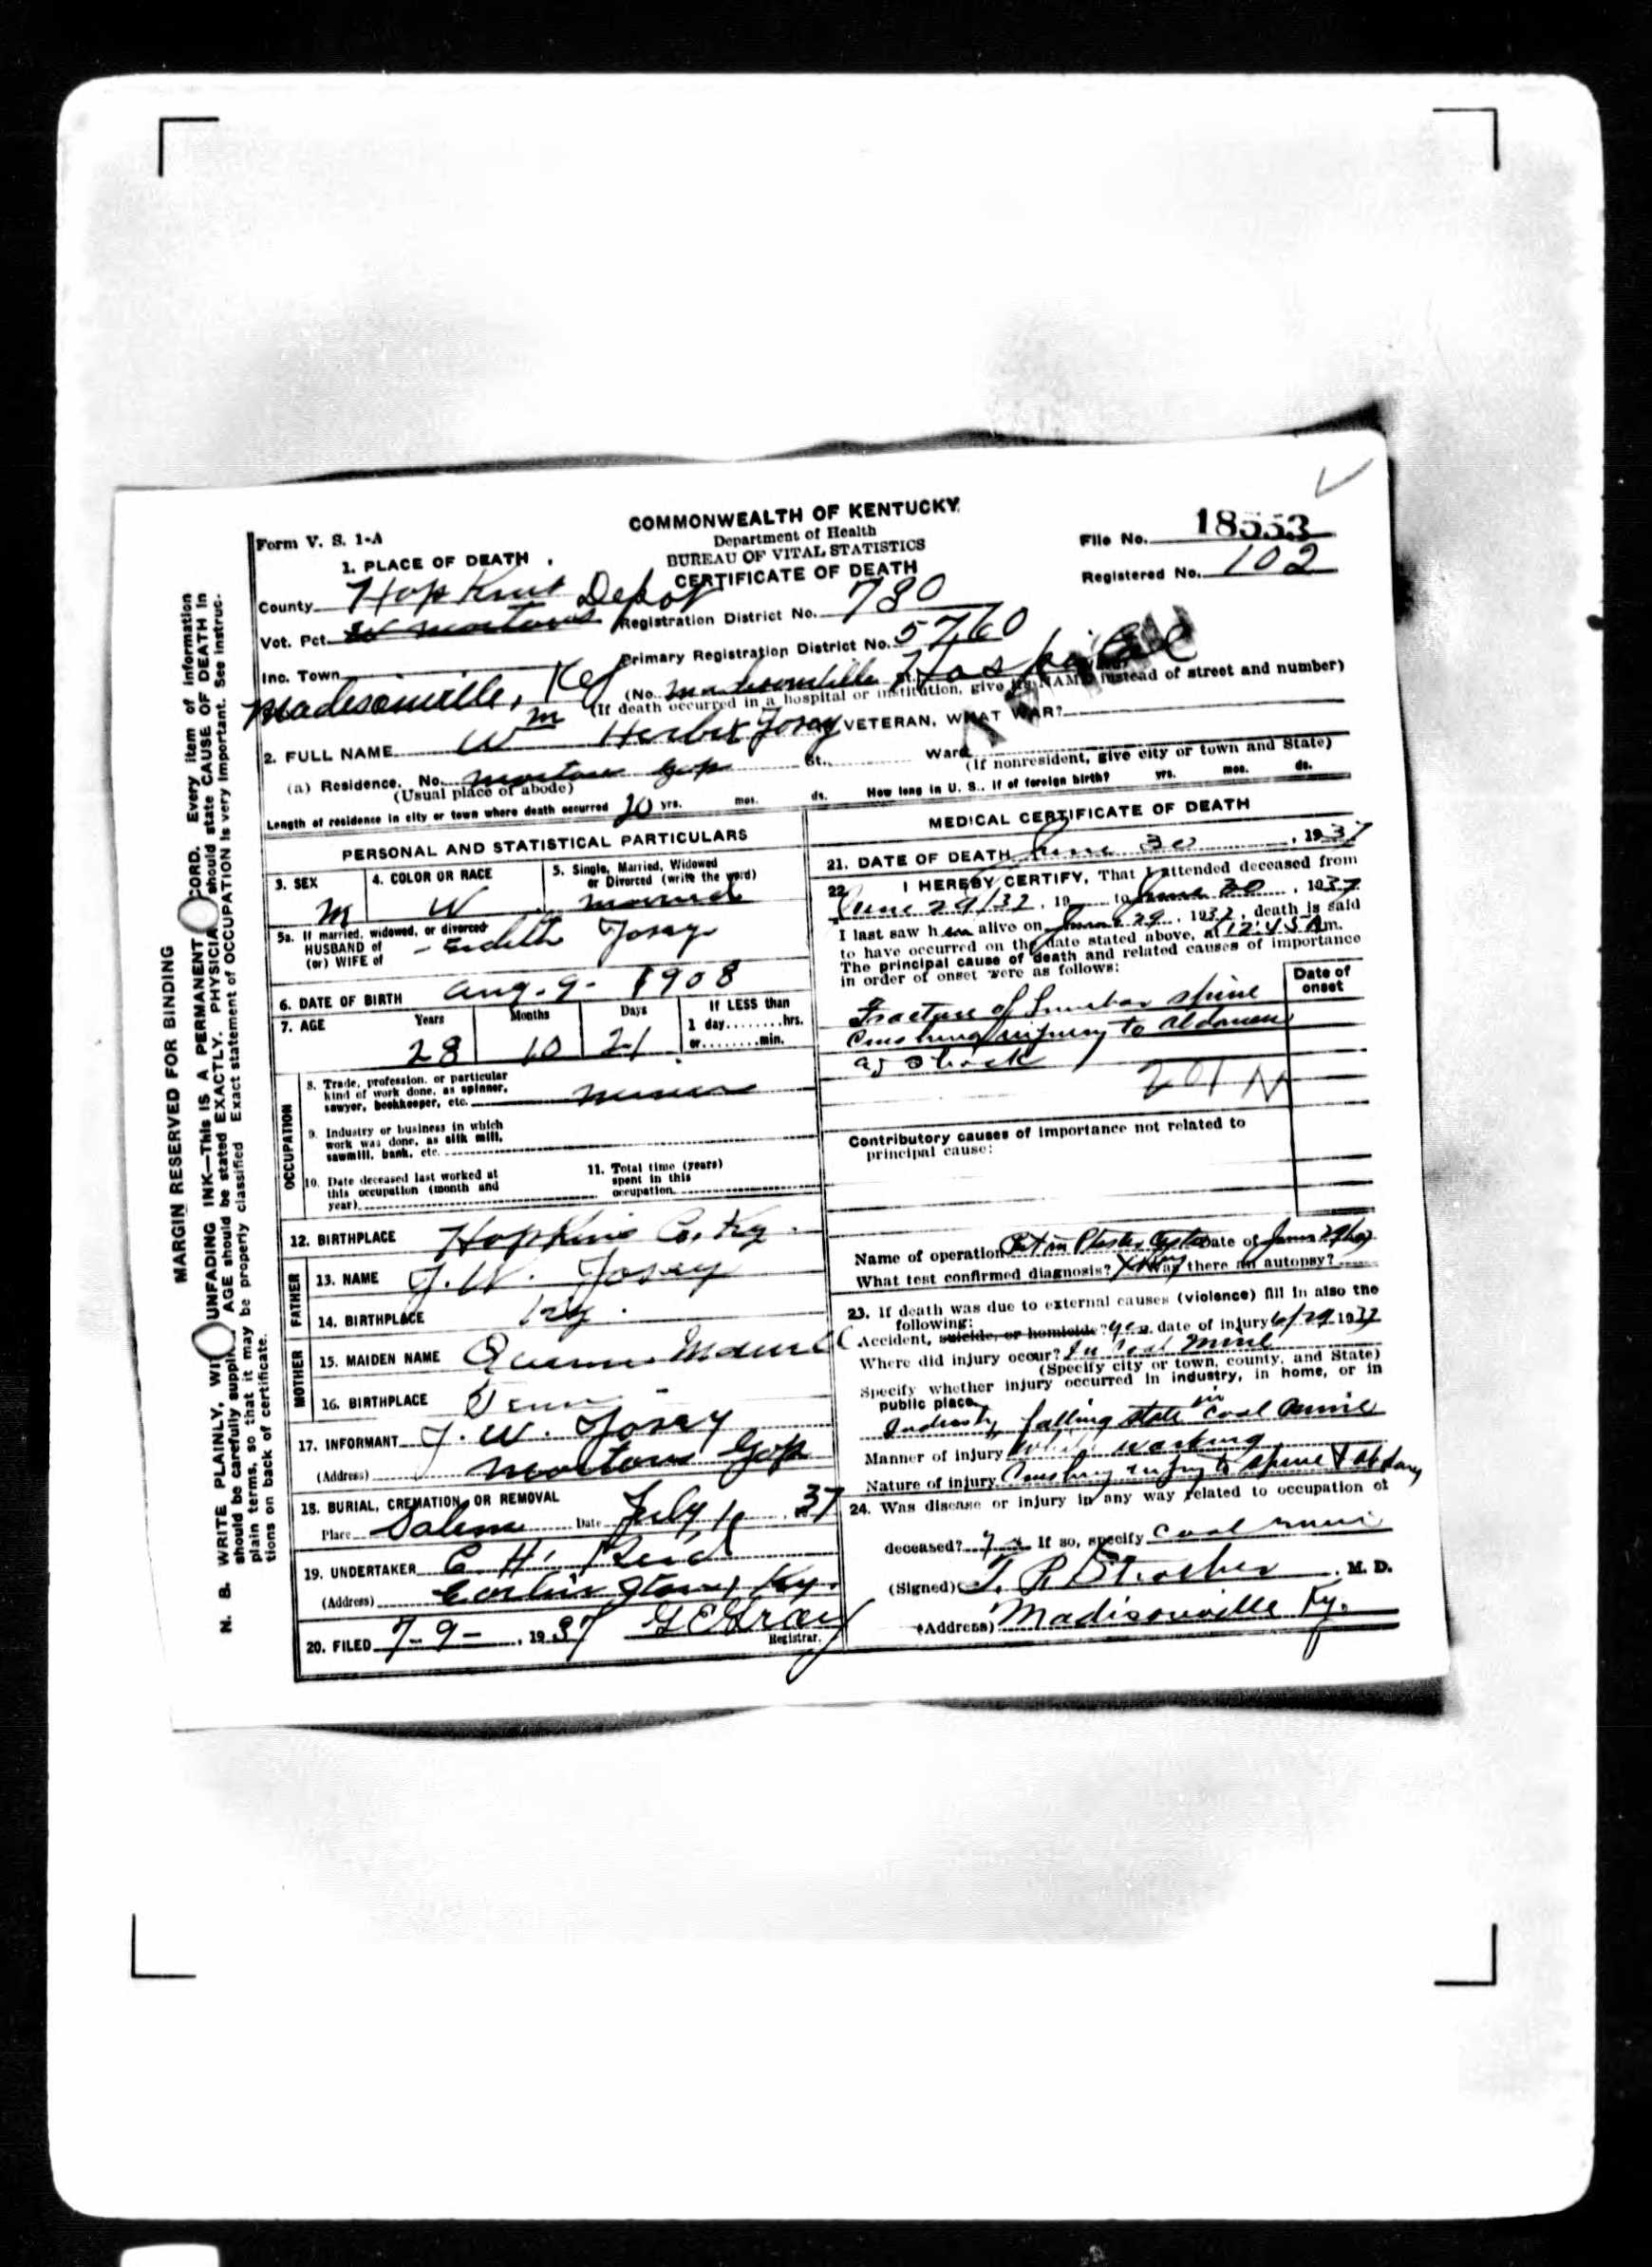 MARGIN RESERVED FOR BINDING
N. B. WRITE PLAINLY, WI UNFADING INK—THIS IS A PERMANENT CORD. Every item of information
should be carefully suppli AGE should be stated EXACTLY. PHYSICIA should state CAUSE OF DEATH in
plain terms, so that it may be properly classified Exact statement of OCCUPATION is very important. See instruc-
tions on back of certificate.
Form V. S. 1-A
COMMONWEALTH OF KENTUCKY
Department of Health
BUREAU OF VITAL STATISTICS
CERTIFICATE OF DEATH
File No. 18553
Registered No. 102
1. PLACE OF DEATH
County Hopkins Depot
Vot. Pct. W Mortons
Registration District No. 780
Inc. Town
Primary Registration District No. 5760
Madisonville, Ky (No. Madisonville Hospital
(If death occurred in a hospital or institution, give its NAME instead of street and number)
2. FULL NAME Wm Herbert Josey VETERAN, WHAT WAR?
(a) Residence. No. Mortons Gap St. Ward
(Usual place of abode) (If nonresident, give city or town and State)
Length of residence in city or town where death occurred yrs. mos. ds. How long in U. S., if of foreign birth? yrs. mos. ds.
PERSONAL AND STATISTICAL PARTICULARS
3. SEX M
4. COLOR OR RACE W
5. Single, Married, Widowed
or Divorced (write the word)
married
5a. If married, widowed, or divorced
HUSBAND of
(or) WIFE of
Edith Josey
6. DATE OF BIRTH Aug. 9 - 1908
7. AGE Years Months Days If LESS than
1 day........hrs.
or........min.
28 10 21
OCCUPATION
8. Trade, profession, or particular
kind of work done, as spinner,
sawyer, bookkeeper, etc. miner
9. Industry or business in which
work was done, as silk mill,
sawmill, bank, etc.
10. Date deceased last worked at
this occupation (month and
year)
11. Total time (years)
spent in this
occupation
12. BIRTHPLACE Hopkins Co. Ky.
FATHER
13. NAME J. W. Josey
14. BIRTHPLACE Ky.
MOTHER
15. MAIDEN NAME
16. BIRTHPLACE Tenn
17. INFORMANT J. W. Josey
(Address) Mortons Gap
18. BURIAL, CREMATION, OR REMOVAL
Place Salem Date July 1 37
19. UNDERTAKER C. H. Reid
(Address) Earlington, Ky.
20. FILED 7-9-, 1937 G E Gray
Registrar.
MEDICAL CERTIFICATE OF DEATH
21. DATE OF DEATH June 30, 1937
22. I HEREBY CERTIFY, That I attended deceased from
June 29/37, 19 to June 30, 1937
I last saw him alive on June 29, 1937, death is said
to have occurred on the date stated above, at 12:45 Am.
The principal cause of death and related causes of importance
in order of onset were as follows:
Date of
onset
Fracture of Lumbar spine
Crushing injury to Abdomen
shock
201 N
Contributory causes of importance not related to
principal cause:
Name of operation Plaster Date of June 29
What test confirmed diagnosis? XRay Was there an autopsy?
23. If death was due to external causes (violence) fill in also the
following:
Accident, suicide, or homicide? yes date of injury 6/29 1937
Where did injury occur? In Coal Mine
(Specify city or town, county, and State)
Specify whether injury occurred in industry, in home, or in
public place.
Industry falling slate in Coal Mine
Manner of injury While working
Nature of injury Crushing injury to spine &
24. Was disease or injury in any way related to occupation of
deceased? yes If so, specify Coal
(Signed) T. R. Strother, M. D.
(Address) Madisonville Ky.